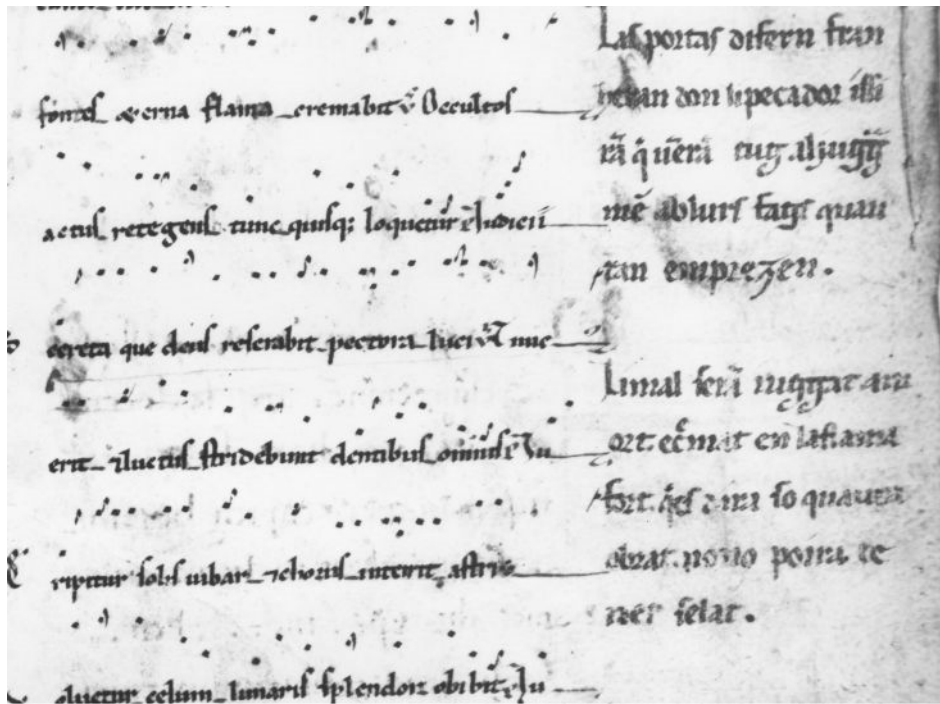 fontes eterna flama cremabit Occultos
actus retegens tunc quisq; loquetur Iudicii
ecreta que deus reserabit pectora luci
erit 7 luctus stridebunt dentibus omnis Iu
ripitur solis iubar 7 chorus interit astris
oluetur celum lunaris splendor obibit Iu
Las portas difern fran
heran don li pecador issi
rã q̃ uẽra tug al
mẽ ab lurs fags quan
tan emprezen.
Li mal serã iuggat
en la flama
fort so quaura
obrat. no so porra te
ner selat.